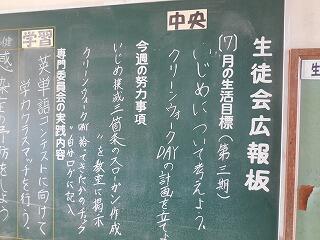 生徒会広報板
中央
(7)月の生活目標（第三期）
いじめについて考えよう。
クリーンウォークDAYの計画を立てよ
今週の努力事項
いじめ撲滅三箇条のスローガン作成
を教室に掲示
クリーンウォークDAY
専門委員会の実践内容
"自分ログに記入
学習
英単語コンテストに向けて
学力クラスマッチを行う。
健
感染症の予防をしよう
生